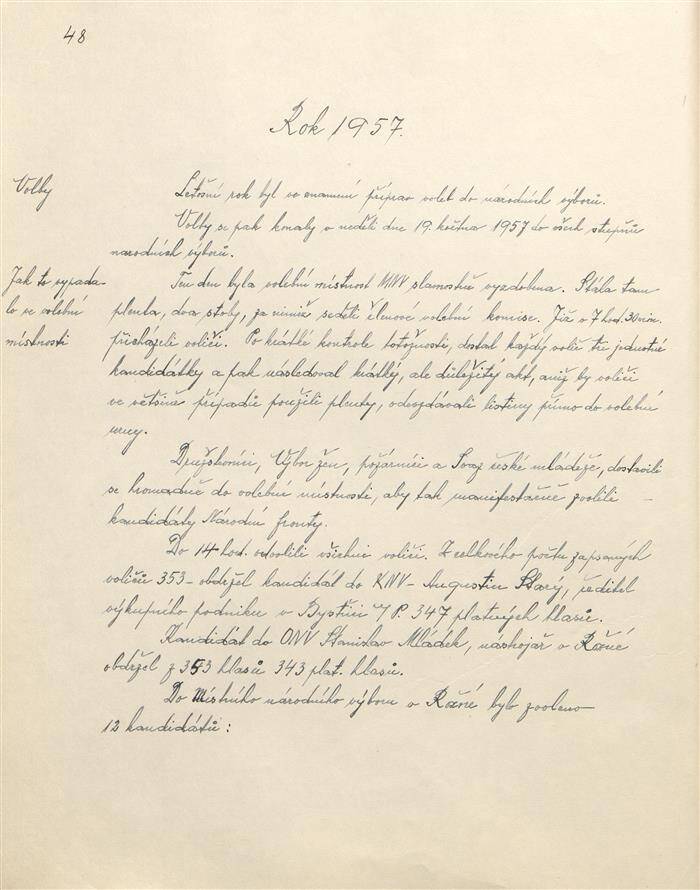 48
Rok 1957.
Volby
Letošní rok byl ve znamení příprav voleb do národních výborů.
Volby se pak konaly v neděli dne 19. května 1957 do všech stupňů
národních výborů.
Jak to vypada-
lo ve volební
místnosti
Ten den byla volební místnost MNV slavnostně vyzdobena. Stála tam
plenta, dva stoly, za nimiž seděli členové volební komise. Již v 7 hod. 30 min.
přicházeli voliči. Po krátké kontrole totožnosti, dostal každý volič tři jednotné
kandidátky a pak následoval krátký, ale důležitý akt, aniž by voliči
ve většině případů použili plenty, odevzdávali listiny přímo do volební
urny.
Družstevníci, Výbor žen, požárníci a Svaz české mládeže, dostavili
se hromadně do volební místnosti, aby tak manifestačně zvolili -
kandidáty Národní fronty.
Do 14 hod. odvolili všichni voliči. Z celkového počtu zapsaných
voličů 353 - obdržel kandidát do KNV - Augustin Starý, ředitel
výkupního podniku v Bystřici n/P. 347 platných hlasů.
Kandidát do ONV Stanislav Mládek, nástrojař v Rožné
obdržel z 353 hlasů 343 plat. hlasů.
Do Místního národního výboru v Rožné bylo zvoleno
12 kandidátů: